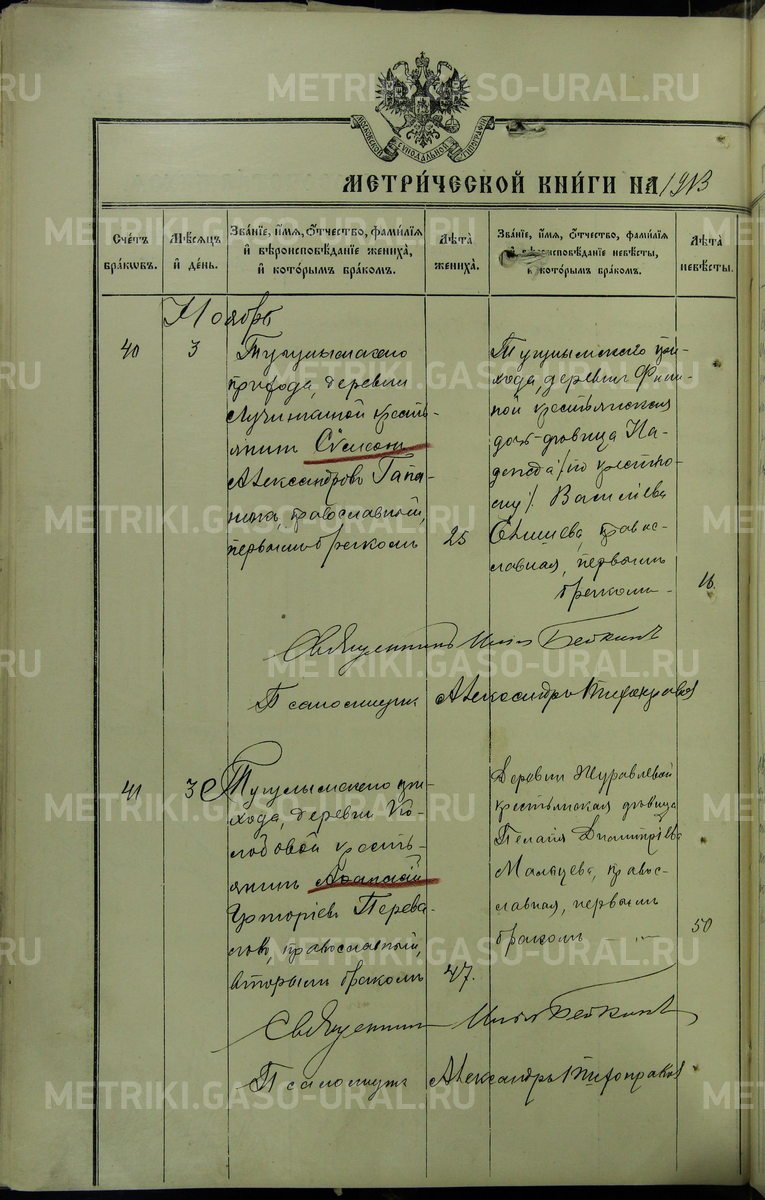 METRIKI.GASO-URAL.RU
МОСКОВСКОЙ СѴНОДАЛЬНОЙ ТИПОГРАФІИ
МЕТРИ́ЧЕСКОЙ КНИ́ГИ НА 1913
Сче́тъ бра́кѡвъ.
Мѣ́сяцъ и҆ де́нь.
Зва́ніе, и҆́мя, ѻ҆́тчество, фами́лія и҆ вѣроисповѣ́даніе жениха̀, и҆ кото́рымъ бра́комъ.
Лѣ́та жениха̀.
Зва́ніе, и҆́мя, ѻ҆́тчество, фами́лія и҆ вѣроисповѣ́даніе невѣ́сты, и҆ кото́рымъ бра́комъ.
Лѣ́та невѣ́сты.
Ноябрь
40
3
Тугулымскаго
прихода, деревни
Лучинкиной кресть-
янинъ Симеонъ
Александровъ
православный,
первымъ бракомъ
25
Тугулымскаго при-
хода, деревни
крестьянская
дочь-дѣвица На-
дежда /по крестно-
му/ Васильева
правос-
лавная, первымъ
бракомъ
16
Священникъ Илья
Псаломщикъ Александръ
41
3
Тугулымскаго при-
хода, деревни Ко-
лобовой кресть-
янинъ Афанасій
Григоріевъ Перева-
ловъ, православный,
вторымъ бракомъ
47.
Деревни Журавлевой
крестьянская дѣвица
Пелагія Димитріева
Мальцева, правос-
лавная, первымъ
бракомъ
50
Священникъ Илья
Псаломщикъ Александръ